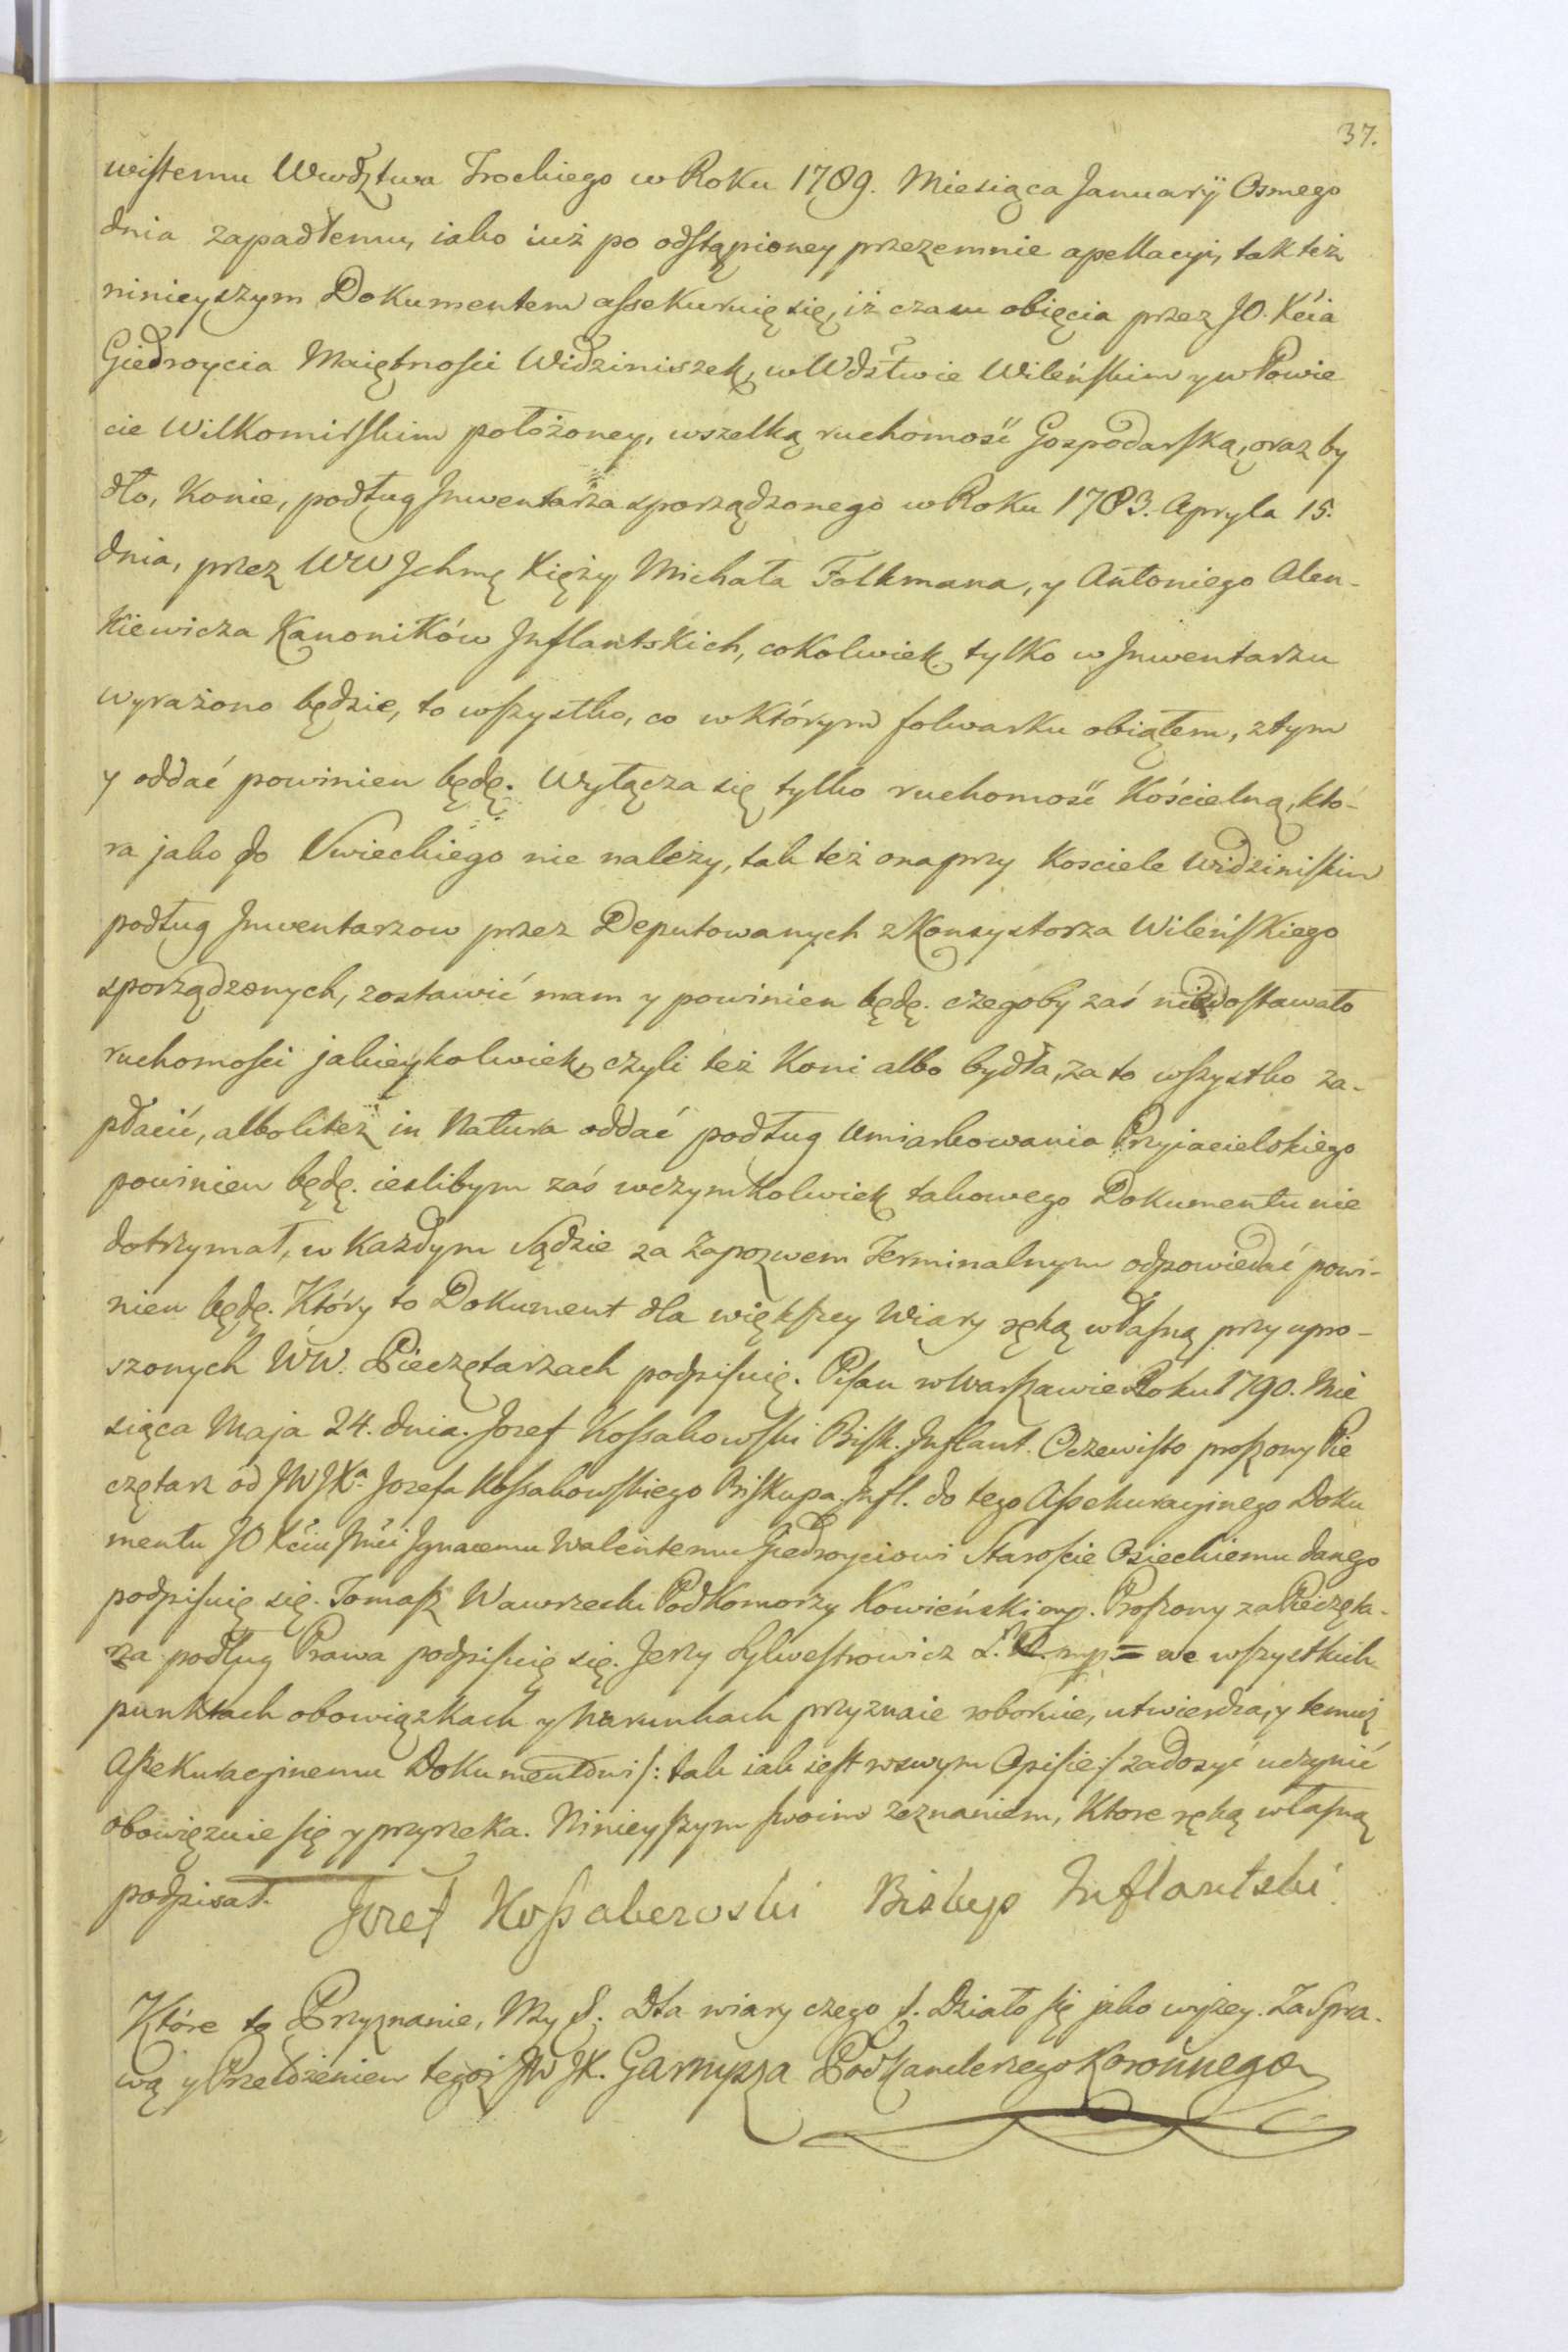 37.
wistemu Wwdztwa Trockiego w Roku 1789. Miesiąca Januarÿ Osmego
dnia zapadłemu, iako iuż po odstąpioney przezemnie apellacyi, tak też
ninieyszym Dokumentem assekuruię się, iż czasu obięcia przez JO. Xcia
Giedroycia Maiętności Widziniszek, w Wdztwie Wileńskim y w Powie
cie Wilkomirskim położoney, wszelką ruchomość Gospodarską, oraz by
dło, Konie, podług Inwentarza sporządzonego w Roku 1783. Apryla 15.
dnia, przez WW Jchmę Xięży Michała Folkmana, y Antoniego Alen-
kiewicza Kanoników Inflantskich, cokolwiek tylko w Inwentarzu
wyrażono będzie, to wszystko, co w którym folwarku obiąłem, z tym
y oddać powinien będę. Wyłącza się tylko ruchomość Kościelną, któ-
ra jako do Swieckiego nie należy, tak też ona przy Kosciele Widziniskim
podług Inwentarzow przez Deputowanych z Konsystorza Wileńskiego
sporządzonych, zostawić mam y powinien będę. czegoby zaś niedostawało
ruchomości jakieykolwiek, czyli też Koni albo bydła, za to wszystko za-
płacić, albo liteż in Natura oddać podług Umiarkowania Przyjacielskiego
powinien będę. ieslibym zaś wczymkolwiek takowego Dokumentu nie
dotrzymał, w Każdym Sądzie za Zapozwem Terminalnym odpowiedać powi-
nien będę. Który to Dokument dla większey Wiary ręką własną przy upro-
szonych WW. Pieczętarzach podpisuię. Pisan w Warszawie Roku 1790. Mie
siąca Maja 24. dnia. Jozef Kossakowski Bisk. Inflant. Oczewisto proszony Pie
czętarz od JW JXa Jozefa Kossakowskiego Biskupa Infl. do tego Assekuracyinego Doku
mentu JO Xciu Jmci Ignacemu Walentemu Giedroyciowi Staroscie Osieckiemu danego
podpisuię się. Tomasz Wawrzecki PodKomorzy Kowieński mp. Proszony za Pieczęta-
rza podług Prawa podpisuię się. Jerzy Sylwestrowicz mp = we wszystkich
punktach obowiązkach y Warunkach przyznaie roboruie, utwierdza, y temuż
Assekuracyinemu Dokumentowi /: tak iak iest w swym Opisie :/ zadosyć uczynić
obowięzuie się y przyrzeka. Ninieyszym swoim zeznaniem, Ktore ręką własną
podpisał. Jozef Kossakowski Biskup Inflantski
Które to Przyznanie, My &. Dla wiary czego &. Działo się jako wyżey. Za Spra-
wą y Przełożeniem tegoż JW JX. Garnysza Podkanclerzego Koronnego